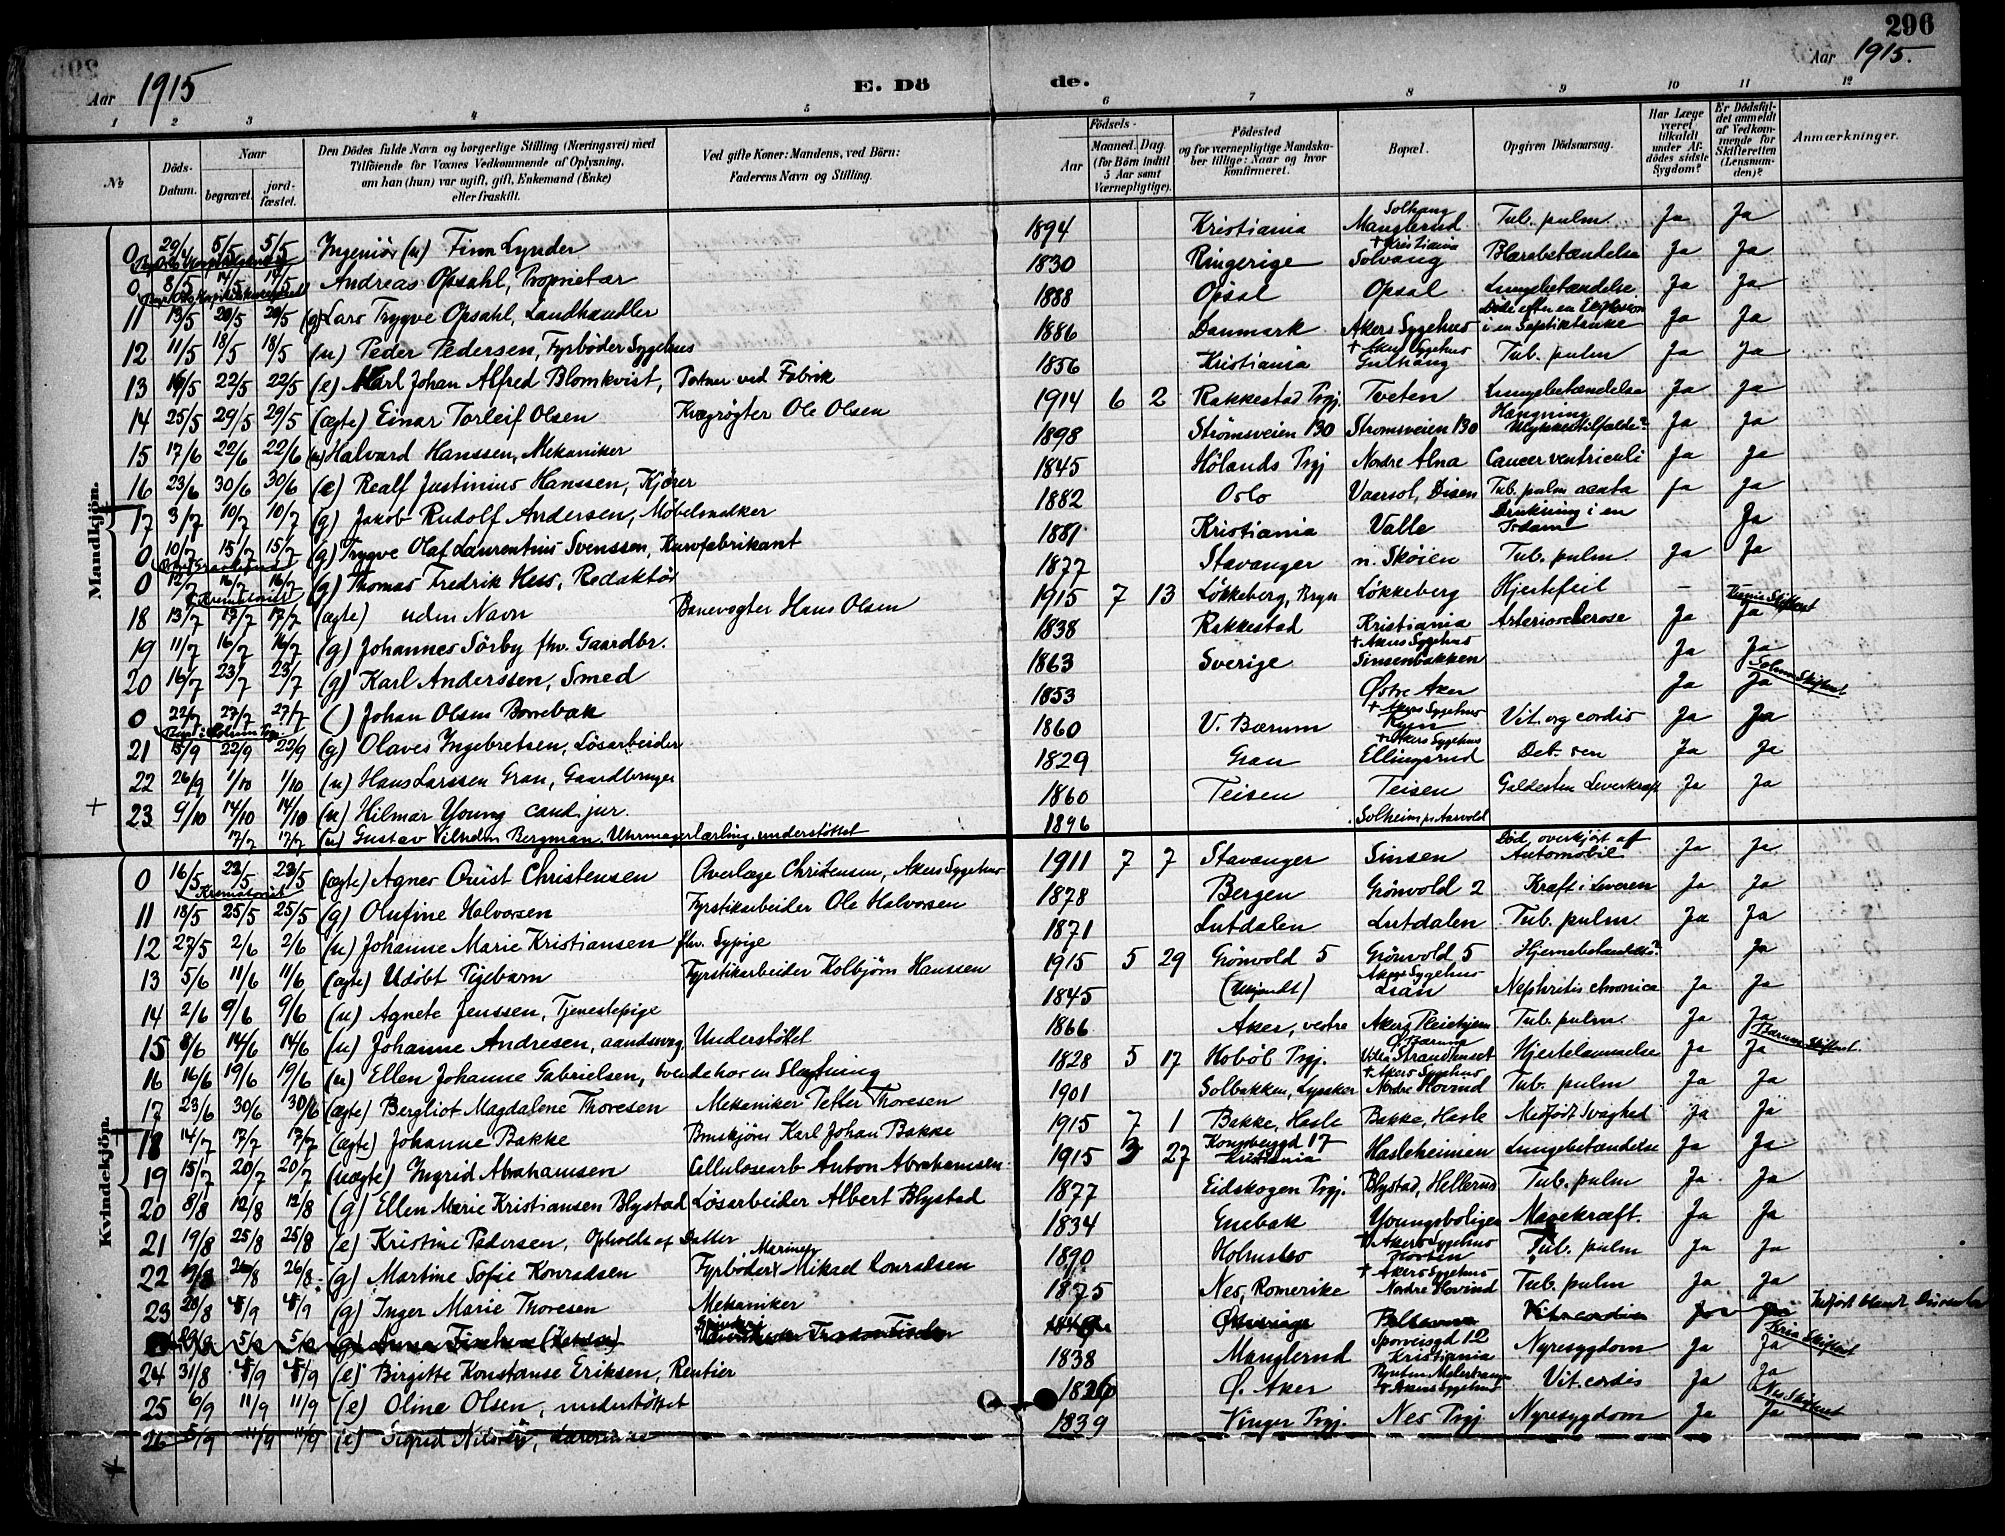 296
Aar 1915
E. Dö de.
Aar 1915.
1 2 3 4 5 6 7 8 9 10 11 12
No
Döds-Datum.
Naar begravet. jord-fæstet.
Den Dödes fulde Navn og borgerlige Stilling (Næringsvei) med Tilföiende for Voxnes Vedkommende af Oplysning, om han (hun) var ugift, gift, Enkemand (Enke) eller fraskilt.
Ved gifte Koner: Mandens, ved Börn: Faderens Navn og Stilling.
Födsels- Aar Maaned. Dag. (for Börn indtil 5 Aar samt Værnepligtige).
Födested og for værnepligtige Mandskaber tillige: Naar og hvor konfirmeret.
Bopæl.
Opgiven Dödsaarsag.
Har Læge været tilkaldt under Afdödes sidste Sygdom?
Er Dödsfaldet anmeldt af Vedkommende for Skifteretten (Lensmanden)?
Anmærkninger.
Mandkjön.
0 29/4 5/5 5/5 Ingeniør (u) Finn Lynder 1894 Kristiania Solhaug Manglerud + Kristiania Tub. pulm. Ja Ja
0 8/5 14/5 14/5 Andreas Opsahl, Proprietær 1830 Ringerige Solvang Blærebetændelse Ja Ja
11 13/5 20/5 20/5 (g) Lars Trygve Opsahl, Landhandler 1888 Opsal Opsal Lungebetændelse Ja Ja
12 11/5 18/5 18/5 (u) Peder Pedersen, Fyrbøder Sygehus 1886 Danmark Akers Sygehus Död efter en Explosion i en Septiktanke Ja Ja
13 16/5 22/5 22/5 (e) Karl Johan Alfred Blomkvist, Portner ved Fabrik 1856 Kristiania + Akers Sygehus Gulhaug Tub. pulm Ja Ja
14 25/5 29/5 29/5 (ægte) Einar Torleif Olsen Kvægrøgter Ole Olsen 1914 6 2 Rakkestad Prgj. Tveten Lungebetændelse Ja Ja
15 17/6 22/6 22/6 (u) Halvard Hanssen, Mekaniker 1898 Strömsveien 130 Strömsveien 130 Hængning Ulykkestilfælde? Ja Ja
16 23/6 30/6 30/6 (e) Realf Justinius Hanssen, Kjörer 1845 Hölands Prgj Nordre Alna Cancer ventriculi Ja Ja
17 3/7 10/7 10/7 (g) Jakob Rudolf Andersen, Möbelsnekker 1882 Oslo Vaarsol, Disen Tub. pulm acuta Ja Ja
0 10/7 15/7 15/7 (g) Trygve Olaf Laurentius Svenssen, Kurvfabrikant 1881 Kristiania Valle Drukning i en Dam Ja
0 12/7 16/7 16/7 (g) Thomas Fredrik Hess, Redaktör 1877 Stavanger n. Skøien Tub. pulm. Ja Ja
Krematoriet
18 13/7 17/7 17/7 (ægte) uden Navn Banevogter Hans Olsen 1915 7 13 Løkkeberg, Bryn Løkkeberg Hjertefeil –
19 11/7 16/7 16/7 (g) Johannes Sörby fhv. Gaardbr. 1838 Rakkestad Kristiania + Akers Sygehus Arteriosclerose Ja Ja
20 16/7 23/7 23/7 (g) Karl Anderssen, Smed 1863 Sverige Sinsenbakken Ja Ja
0 22/7 27/7 27/7 ( ) Johan Olsen Borrebæk 1853 Østre Aker + Akers Sygehus Ja Ja
21 15/9 22/9 22/9 (g) Olaves Ingebretsen, Løsarbeider 1860 V. Bærum Ryen + Akers Sygehus Vit. org cordis Ja Ja
22 26/9 1/10 1/10 (u) Hans Larssen Gran, Gaardbruger 1829 Gran Ellingsrud Deb. sen Ja Ja
23 9/10 14/10 14/10 (u) Hilmar Young cand. jur. 1860 Teisen Teisen Galdesten Leverkræft Ja Ja
17/7 17/7 (u) Gustav Vilhelm Bergman, Uhrmagerlærling, understöttet 1896 Solheim pr Aarvold
Kvindekjön.
0 16/5 23/5 23/5 (ægte) Agnes Quist Christensen Overlæge Christensen, Akers Sygehus 1911 7 7 Stavanger Sinsen Död, overkjört af Automobil Ja Ja
Krematoriet
11 18/5 25/5 25/5 (g) Olufine Halvorsen Fyrstikarbeider Ole Halvorsen 1878 Bergen Grönvold 2 Kræft i Leveren Ja Ja
12 27/5 2/6 2/6 (u) Johanne Marie Kristiansen fhv. Sypige 1871 Lutdalen Lutdalen Tub. pulm. Ja Ja
13 5/6 11/6 11/6 (ægte) Udöbt Pigebarn Fyrstikarbeider Kolbjörn Hanssen 1915 5 29 Grönvold 5 Grönvold 5 Hjernebetændelse? Ja
14 2/6 9/6 9/6 (u) Agnete Jenssen, Tjenestepige 1845 (Ukjendt) Akers Sygehus Lian Nephritis chronica Ja Ja
15 8/6 14/6 14/6 (u) Johanne Andresen, aandssvag Understöttet 1866 Aker, vestre Akers Pleiehjem Tub. pulm. Ja Ja
16 16/6 19/6 19/6 (u) Ellen Johanne Gabrielsen, boende hos en Slægtning 1828 5 17 Hobøl Prgj. Villa Strandhuset Hjertelammelse Ja Ja Bærum Skifteret
17 23/6 30/6 30/6 (ægte) Bergliot Magdalene Thoresen Mekaniker Petter Thoresen 1901 Solbakken, Lysaker + Akers Sygehus Nordre Hovind Tub. pulm Ja Ja
18 14/7 17/7 17/7 (ægte) Johanne Bakke Bruskjörer Karl Johan Bakke 1915 7 1 Bakke, Hasle Bakke, Hasle Medfödt Svaghed Ja Ja
19 15/7 20/7 20/7 (uægte) Ingrid Abrahamsen Cellulosearb. Anton Abrahamsen 1915 3 27 Kongsberggd 17 Kristiania Hasleheimen Lungebetændelse Ja Ja
20 8/8 12/8 12/8 (g) Ellen Marie Kristiansen Blystad Løsarbeider Albert Blystad 1877 Eidskogen Prgj. Blystad, Hellerud Tub. pulm Ja Ja
21 19/8 25/8 25/8 (e) Kristine Pedersen, Ophold af Datter 1834 Enebak Youngsboligen Mavekræft. Ja Ja
22 26/8 26/8 (g) Martine Sofie Konradsen Fyrböder v Marinen Mikael Konradsen 1890 Holmsbo + Akers Sygehus Horten Tub. pulm Ja Ja
23 28/8 4/9 4/9 (g) Inger Marie Thoresen Mekaniker 1875 Nes, Romerike + Akers Sygehus Nordre Hovind Tub. pulm Ja Ja
Indfört blandt Dissenter
24 31/8 4/9 4/9 (e) Birgitte Konstanse Eriksen, Rentier 1838 Manglerud Sporveisgd 12 Kristiania Nyresygdom Ja Ja Kria Skifteret
25 6/9 11/9 11/9 (e) Oline Olsen, understöttet 1826 Ø. Aker + Akers Sygehus Vit. cordis Ja Ja
26 5/9 11/9 11/9 (e) Sigrid Nilsen, 1839 Vinger Prgj. Nes Prgj Nyresygdom Ja Ja Nes Skifteret